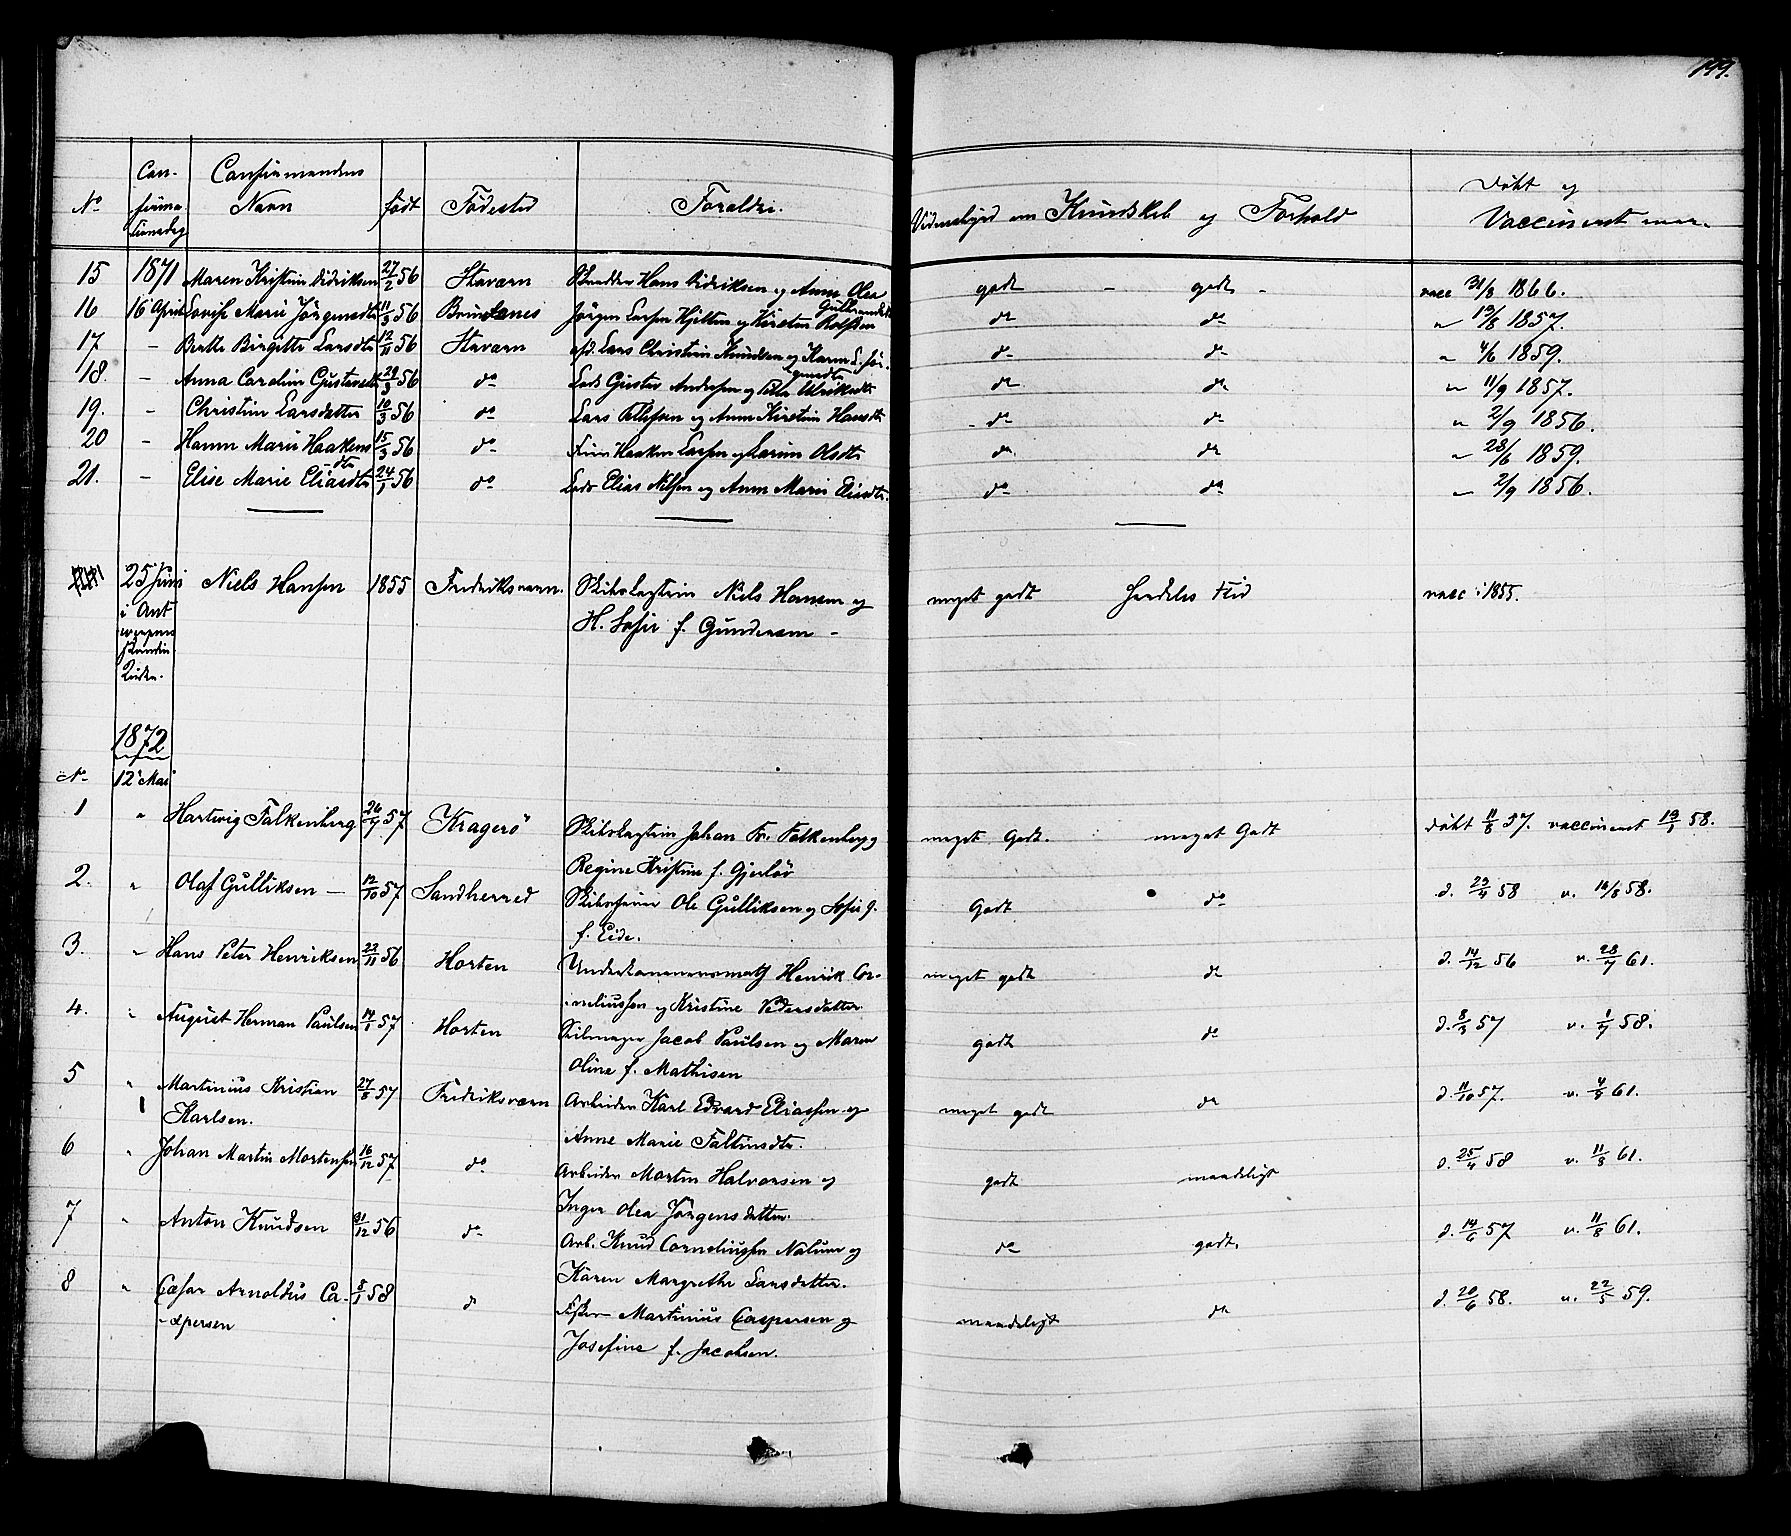 149.
No Confirmations dag Confirmandens Navn født Fødested Forældre. Vidnesbyrd om Kundskab og Forhold Døbt og Vaccineret naar
15 1871 Maren Kristine Didriksen 27/2 56 Staværn Hans Didriksen og Anne Olea Gulbrandsdt godt - godt - vacc 31/8 1866.
16 16 April Lovise Marie Jörgensdtr 11/3 56 Jörgen Larsen og Kirsten do do " 19/8 1857.
17 - Berthe Birgitte Larsdtr 12/11 56 Staværn afd. Lars Christian Knudsen og Karen do do " 4/6 1859.
18. - Anna Caroline Gustavsdt 29/3 56 do Lods Gustav Andersen og do do " 11/9 1857.
19. - Christine Larsdatter 10/3 56 do Lars og Anne Kirstine Hansdt do do " 2/9 1856.
20 - Hanne Marie Haakensdtr 15/3 56 do Haaken Larsen og Larine Olsdtr do do " 28/6 1859.
21. - Elise Marie Eliasdtr 24/1 56 do Lods Elias Nilsen og Anne Marie Eliasdtr. do do " 2/9 1856.
25 Juni i Antwerpens Kirke. Niels Hansen 1855 Fredriksværn. Skibskaptein Niels Hansen og meget godt Flid vacc: 1855.
H. Sofie f. Gundersen -
1872
No 12 Mai
1 " Hartvig Falkenberg 26/7 57 Kragerö Skibskaptein Johan Fr. Falkenberg meget Godt. meget Godt døbt 11/8 57. vaccineret 19/1 58.
Regine Kristine f. Gjerlöv
2. " Olaf Gulliksen - 12/10 57 Sandherred Ole Gulliksen og Sofie J. Godt do d. 23/4 58 v. 16/8 58.
f. Eide.
3. " Hans Peter Henriksen 23/11 56 Horten Underkanonersmath Henrik Cor- meget godt do d. 14/12 56 v. 28/7 61.
neliussen og Kristine Pedersdatter
4. " August Herman Paulsen 14/1 57 Horten Seilmager Jacob Paulsen og Maren godt do d. 8/3 57 v. 1/7 58.
Oline f. Mathisen
5 " Martinius Kristian Karlsen. 27/8 57 Fredriksværn Arbeider Karl Edvard Eliassen og meget godt do d. 11/10 57. v. 61.
Anne Marie Faltinsdtr.
6 " Johan Martin Mortensen 16/12 57 do Arbeider Morten Halvorsen og godt maadeligt d. 25/4 58 v. 11/8 61.
Inger Olea Jörgensdatter.
7 " Anton Knudsen 31/12 56 do Arb. Knud Corneliussen Nalum og do godt. d. 14/6 57 v. 11/8 61.
Karen Margrethe Larsdatter.
8 " Cæsar Arnoldus Ca- 8/1 58 do Fisker Martinius Caspersen og maadeligt do d. 20/6 58. v. 22/5 59.
spersen Josefine f. Jacobsen.